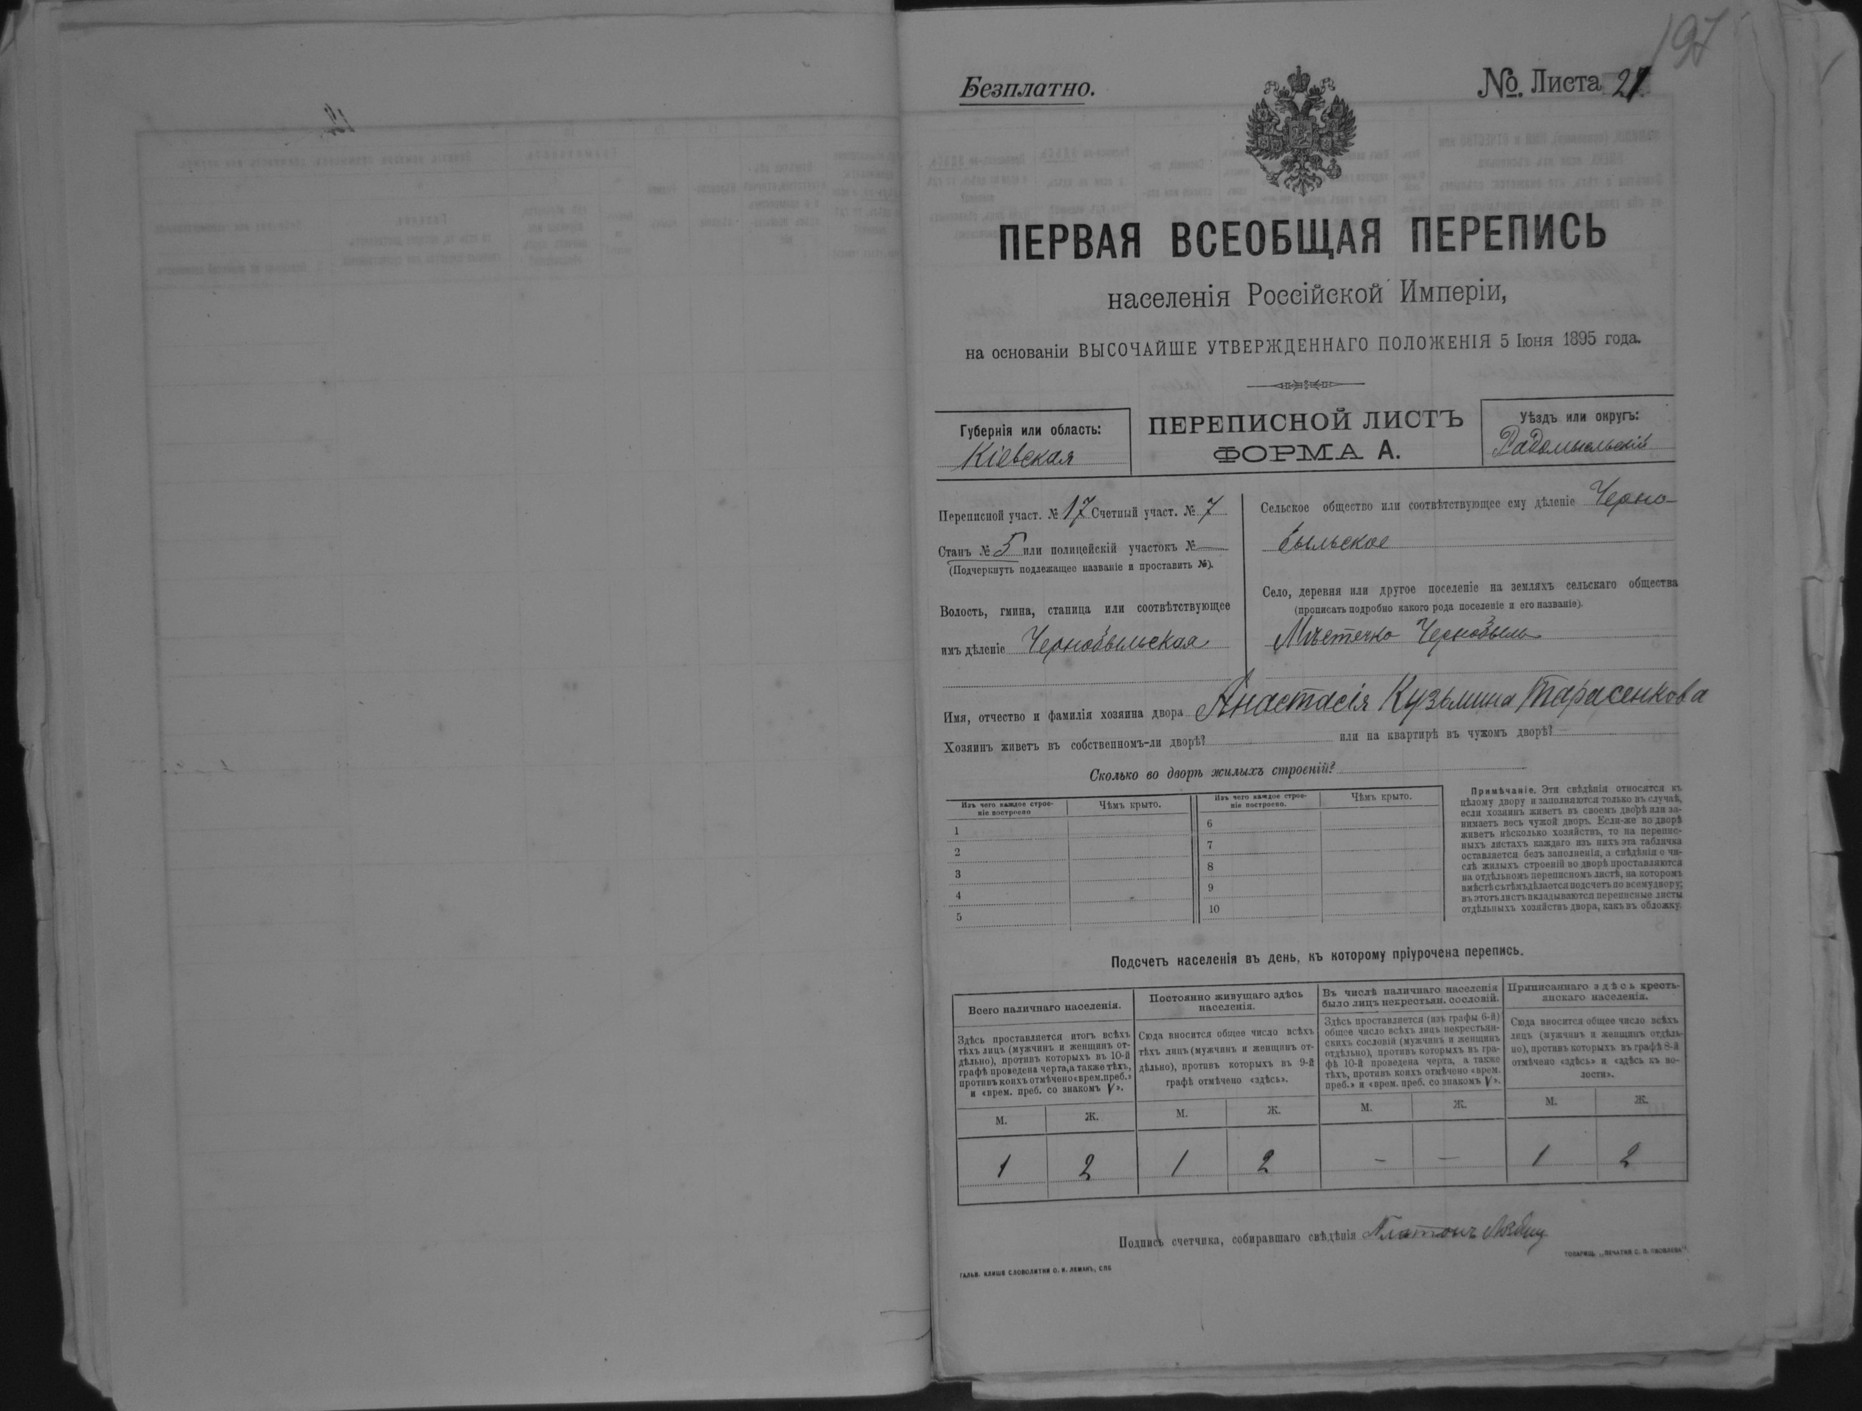 197
Безплатно.
№. Листа 21
ПЕРВАЯ ВСЕОБЩАЯ ПЕРЕПИСЬ
населенія Россійской Имперіи,
на основаніи ВЫСОЧАЙШЕ УТВЕРЖДЕННАГО ПОЛОЖЕНІЯ 5 Іюня 1895 года.
Губернія или область:
Кіевская
ПЕРЕПИСНОЙ ЛИСТЪ
ФОРМА А.
Уѣздъ или округъ:
Радомысльскій
Переписной участ. № 17 Счетный участ. № 7
Станъ № 5 или полицейскій участокъ № —
(Подчеркнуть подлежащее названіе и проставить №).
Волость, гмина, станица или соотвѣтствующее
имъ дѣленіе Чернобыльская
Сельское общество или соотвѣтствующее ему дѣленіе Черно-
быльское
Село, деревня или другое поселеніе на земляхъ сельскаго общества
(прописать подробно какого рода поселеніе и его названіе).
Мѣстечко Чернобыль
Имя, отчество и фамилія хозяина двора Анастасія Кузьмина Тарасенкова
Хозяинъ живетъ въ собственномъ-ли дворѣ? или на квартирѣ въ чужомъ дворѣ?
Сколько во дворѣ жилыхъ строеній?
Изъ чего каждое строе-
ніе построено
Чѣмъ крыто.
1
2
3
4
5
Изъ чего каждое строе-
ніе построено.
Чѣмъ крыто.
6
7
8
9
10
Примѣчаніе. Эти свѣдѣнія относятся къ
цѣлому двору и заполняются только въ случаѣ,
если хозяинъ живетъ въ своемъ дворѣ или за-
нимаетъ весь чужой дворъ. Если-же во дворѣ
живетъ нѣсколько хозяйствъ, то на перепис-
ныхъ листахъ каждаго изъ нихъ эта табличка
оставляется безъ заполненія, а свѣдѣнія о чи-
слѣ жилыхъ строеній во дворѣ проставляются
на отдѣльномъ переписномъ листѣ, на которомъ
вмѣстѣ съ тѣмъ дѣлается подсчетъ по всему двору;
въ этотъ листъ вкладываются переписные листы
отдѣльныхъ хозяйствъ двора, какъ въ обложку.
Подсчетъ населенія въ день, къ которому пріурочена перепись.
Всего наличнаго населенія.
Здѣсь проставляется итогъ всѣхъ
тѣхъ лицъ (мужчинъ и женщинъ от-
дѣльно), противъ которыхъ въ 10-й
графѣ проведена черта, а также тѣхъ,
противъ коихъ отмѣчено «врем. преб.»
и «врем. преб. со знакомъ V».
М. Ж.
1 2
Постоянно живущаго здѣсь
населенія.
Сюда вносится общее число всѣхъ
тѣхъ лицъ (мужчинъ и женщинъ от-
дѣльно), противъ которыхъ въ 9-й
графѣ отмѣчено «здѣсь».
М. Ж.
1 2
Въ числѣ наличнаго населенія
было лицъ некрестьян. сословій.
Здѣсь проставляется (изъ графы 6-й)
общее число всѣхъ лицъ некрестьян-
скихъ сословій (мужчинъ и женщинъ
отдѣльно), противъ которыхъ въ гра-
фѣ 10-й проведена черта, а также
тѣхъ, противъ коихъ отмѣчено «врем.
преб.» и «врем. преб. со знакомъ V».
М. Ж.
— —
Приписаннаго здѣсь кресть-
янскаго населенія.
Сюда вносится общее число всѣхъ
лицъ (мужчинъ и женщинъ отдѣль-
но), противъ которыхъ въ графѣ 8-й
отмѣчено «здѣсь» и «здѣсь къ во-
лости».
М. Ж.
1 2
Подпись счетчика, собиравшаго свѣдѣнія Платонъ
ГАЛЬВ. КЛИШЕ СЛОВОЛИТНИ О. И. ЛЕМАНЪ, СПБ
ТОВАРИЩ. „ПЕЧАТНЯ С. П. ЯКОВЛЕВА".